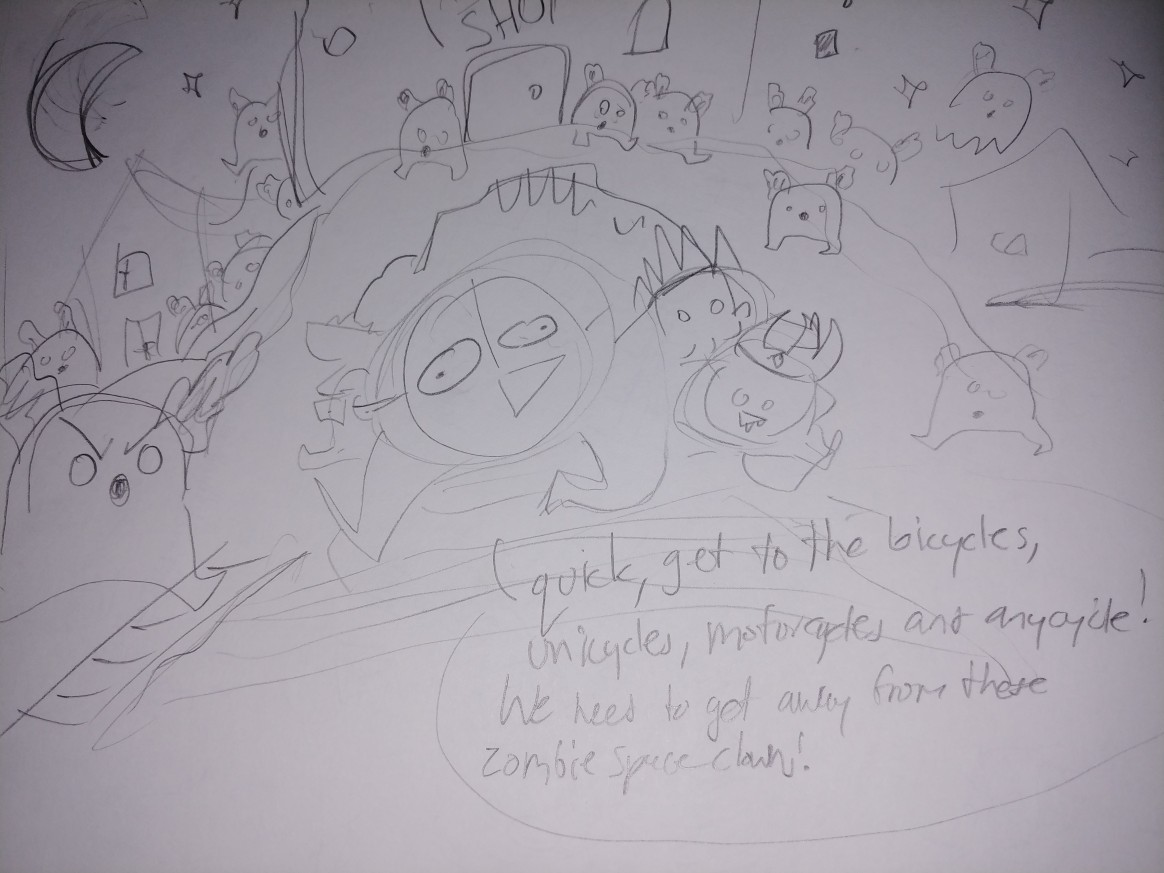 SHOP
quick, get to the bicycles,
unicycles, motorcycles and anycycle!
We need to get away from these
zombie space clown!